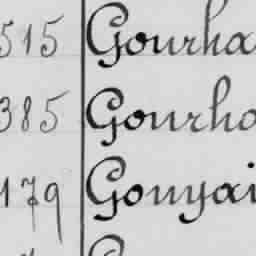 515 Gourha
385 Gourha
179 Gouyai